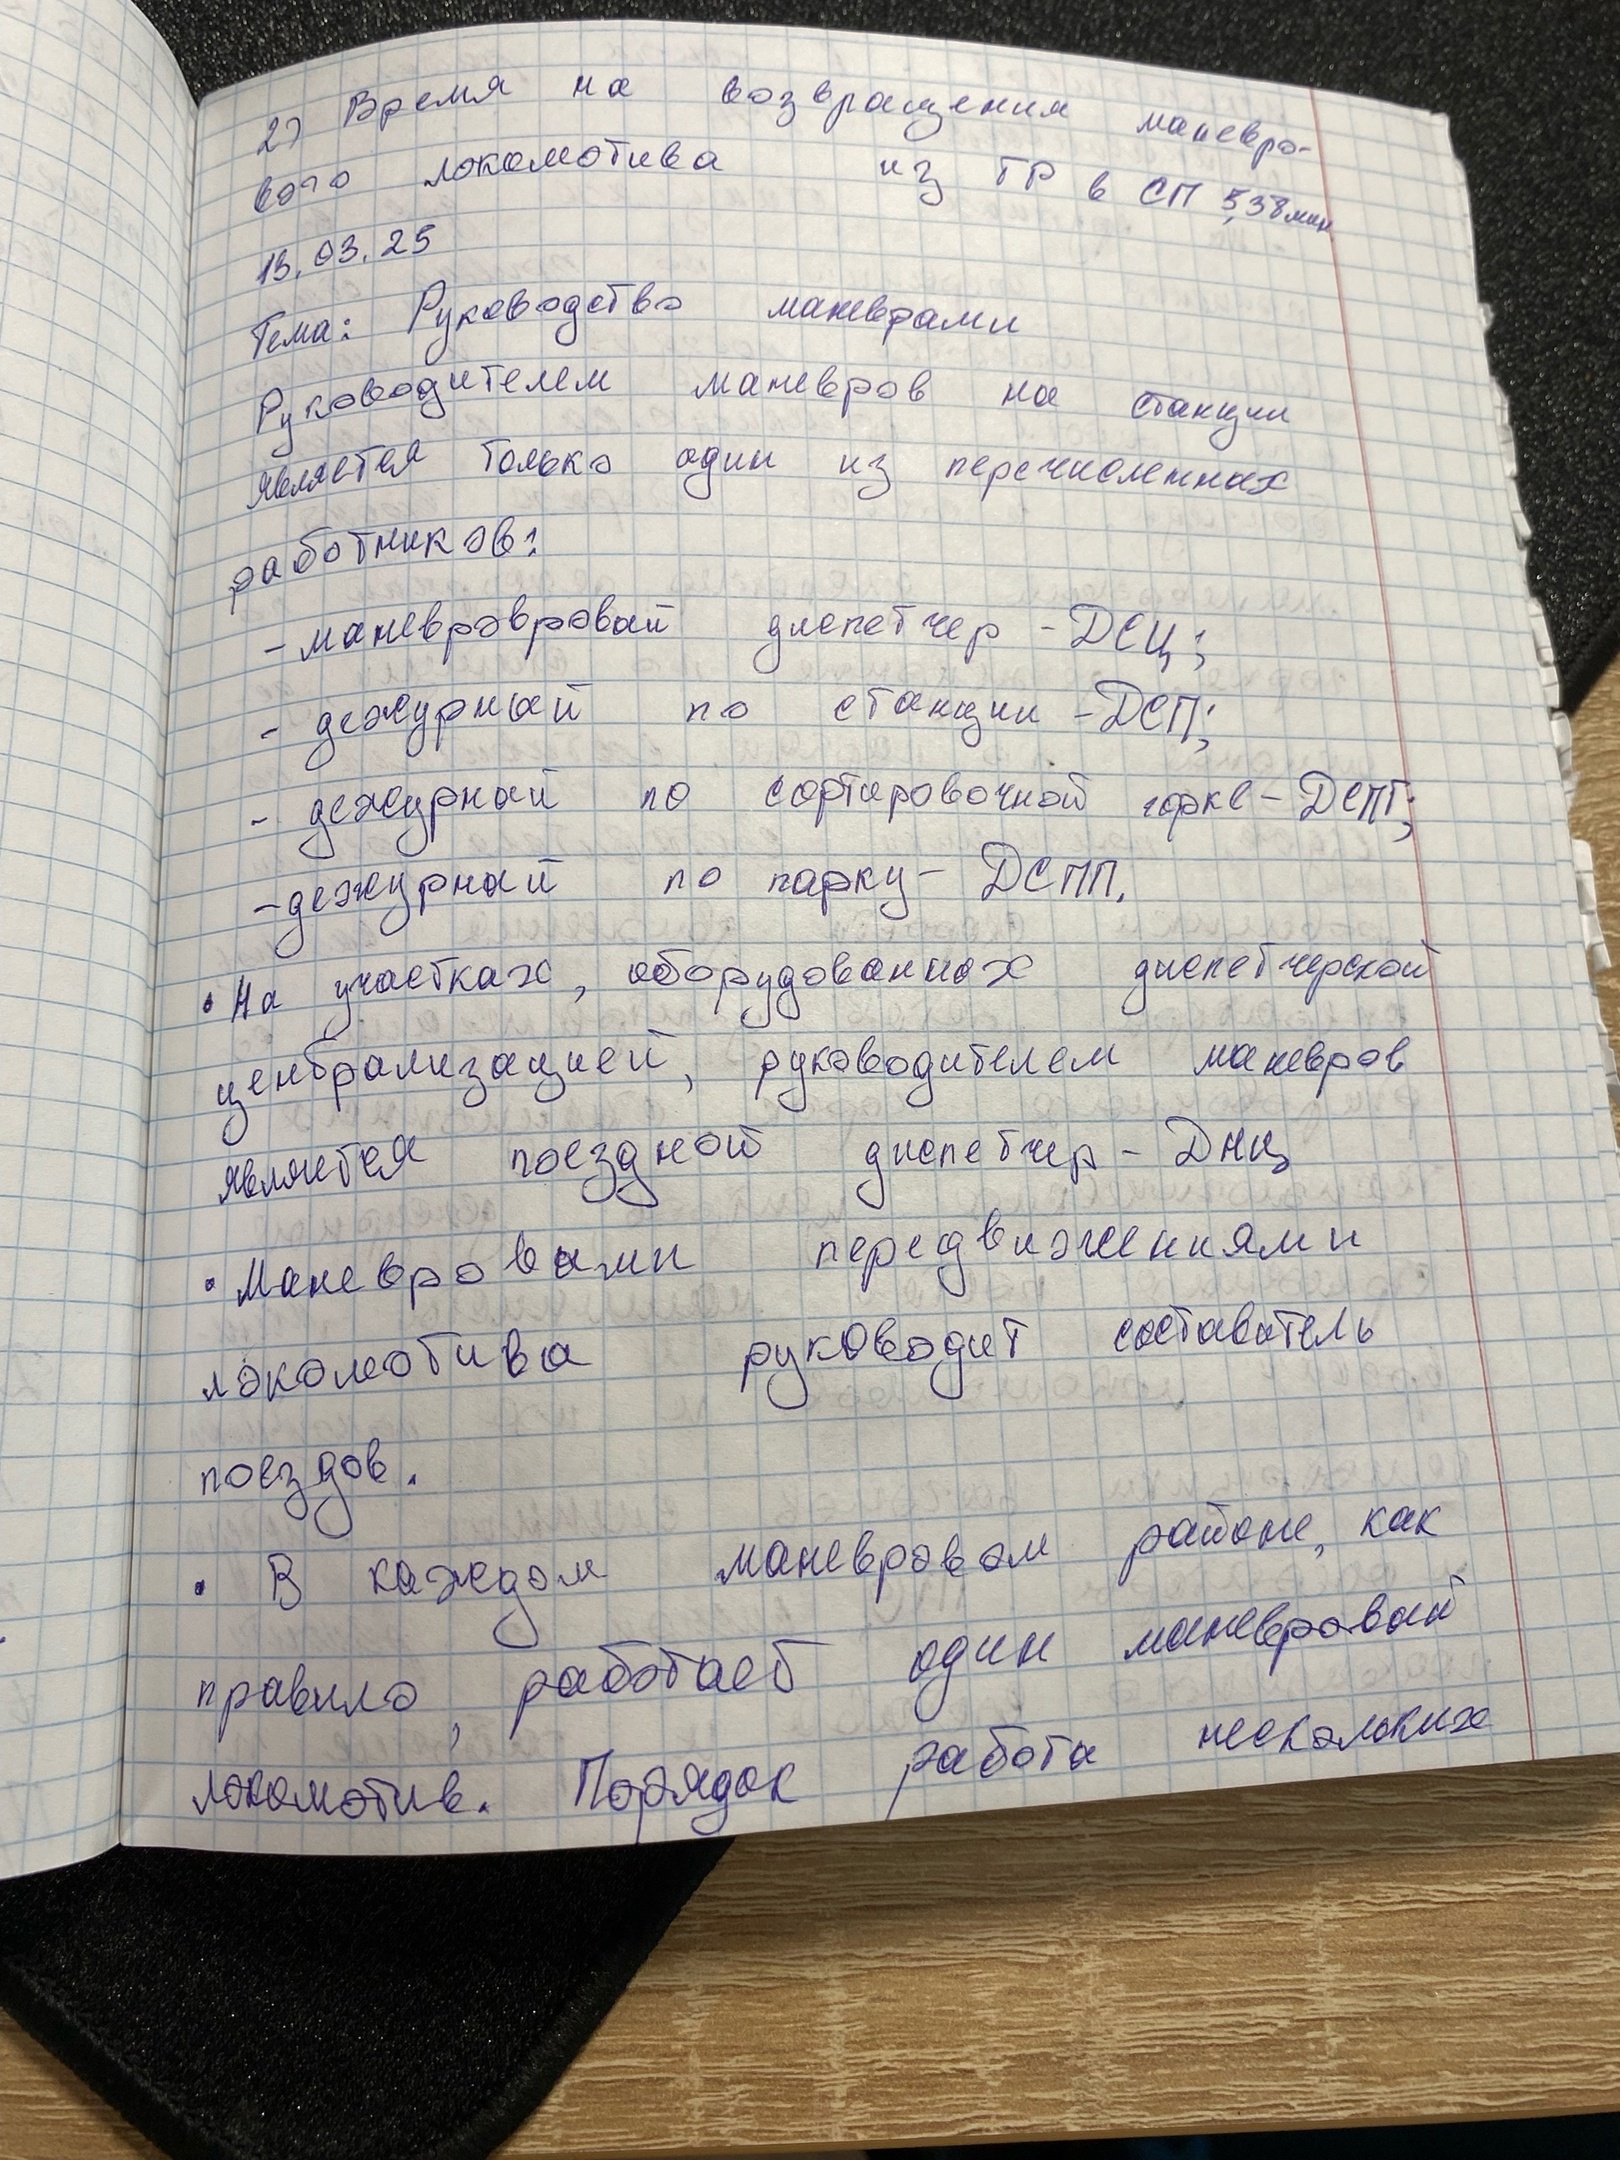 2) Время на возвращения маневро-
вого локомотива из ГР в СП 5,38мин
13.03.25
Тема: Руководство маневрами
Руководителем маневров на станции
является только один из перечисленных
работников:
- маневрвровый диспетчер - ДСЦ;
- дежурный по станции - ДСП;
- дежурный по сортировочной горке - ДСПГ;
- дежурный по парку - ДСПП.
• На участках, оборудованных диспетчерской
централизацией, руководителем маневров
является поездной диспетчер - ДНЦ
• Маневровыми передвижениями
локомотива руководит составитель
поездов.
• В каждом маневровом районе, как
правило, работает один маневровый
локомотив. Порядок работы нескольких